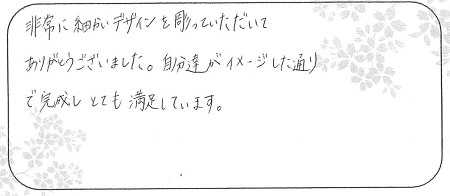 非常に細かいデザインを彫っていただいて
ありがとうございました。自分達がイメージした通り
で完成しとても満足しています。